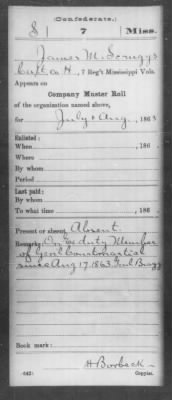 (Confederate.)
S 7 Miss.
James M. Scruggs
Capt Co H, 7 Reg't Mississippi Vols.
Appears on
Company Muster Roll
of the organization named above,
for July & Aug, 1863
Enlisted:
When , 186 .
Where
By whom
Period
Last paid:
By whom
To what time , 186 .
Present or absent Absent
Remarks: On Ex duty Member
of Genl Court martial
since Aug 17. 1863 Genl Bragg
Book mark:
(642) Copyist.